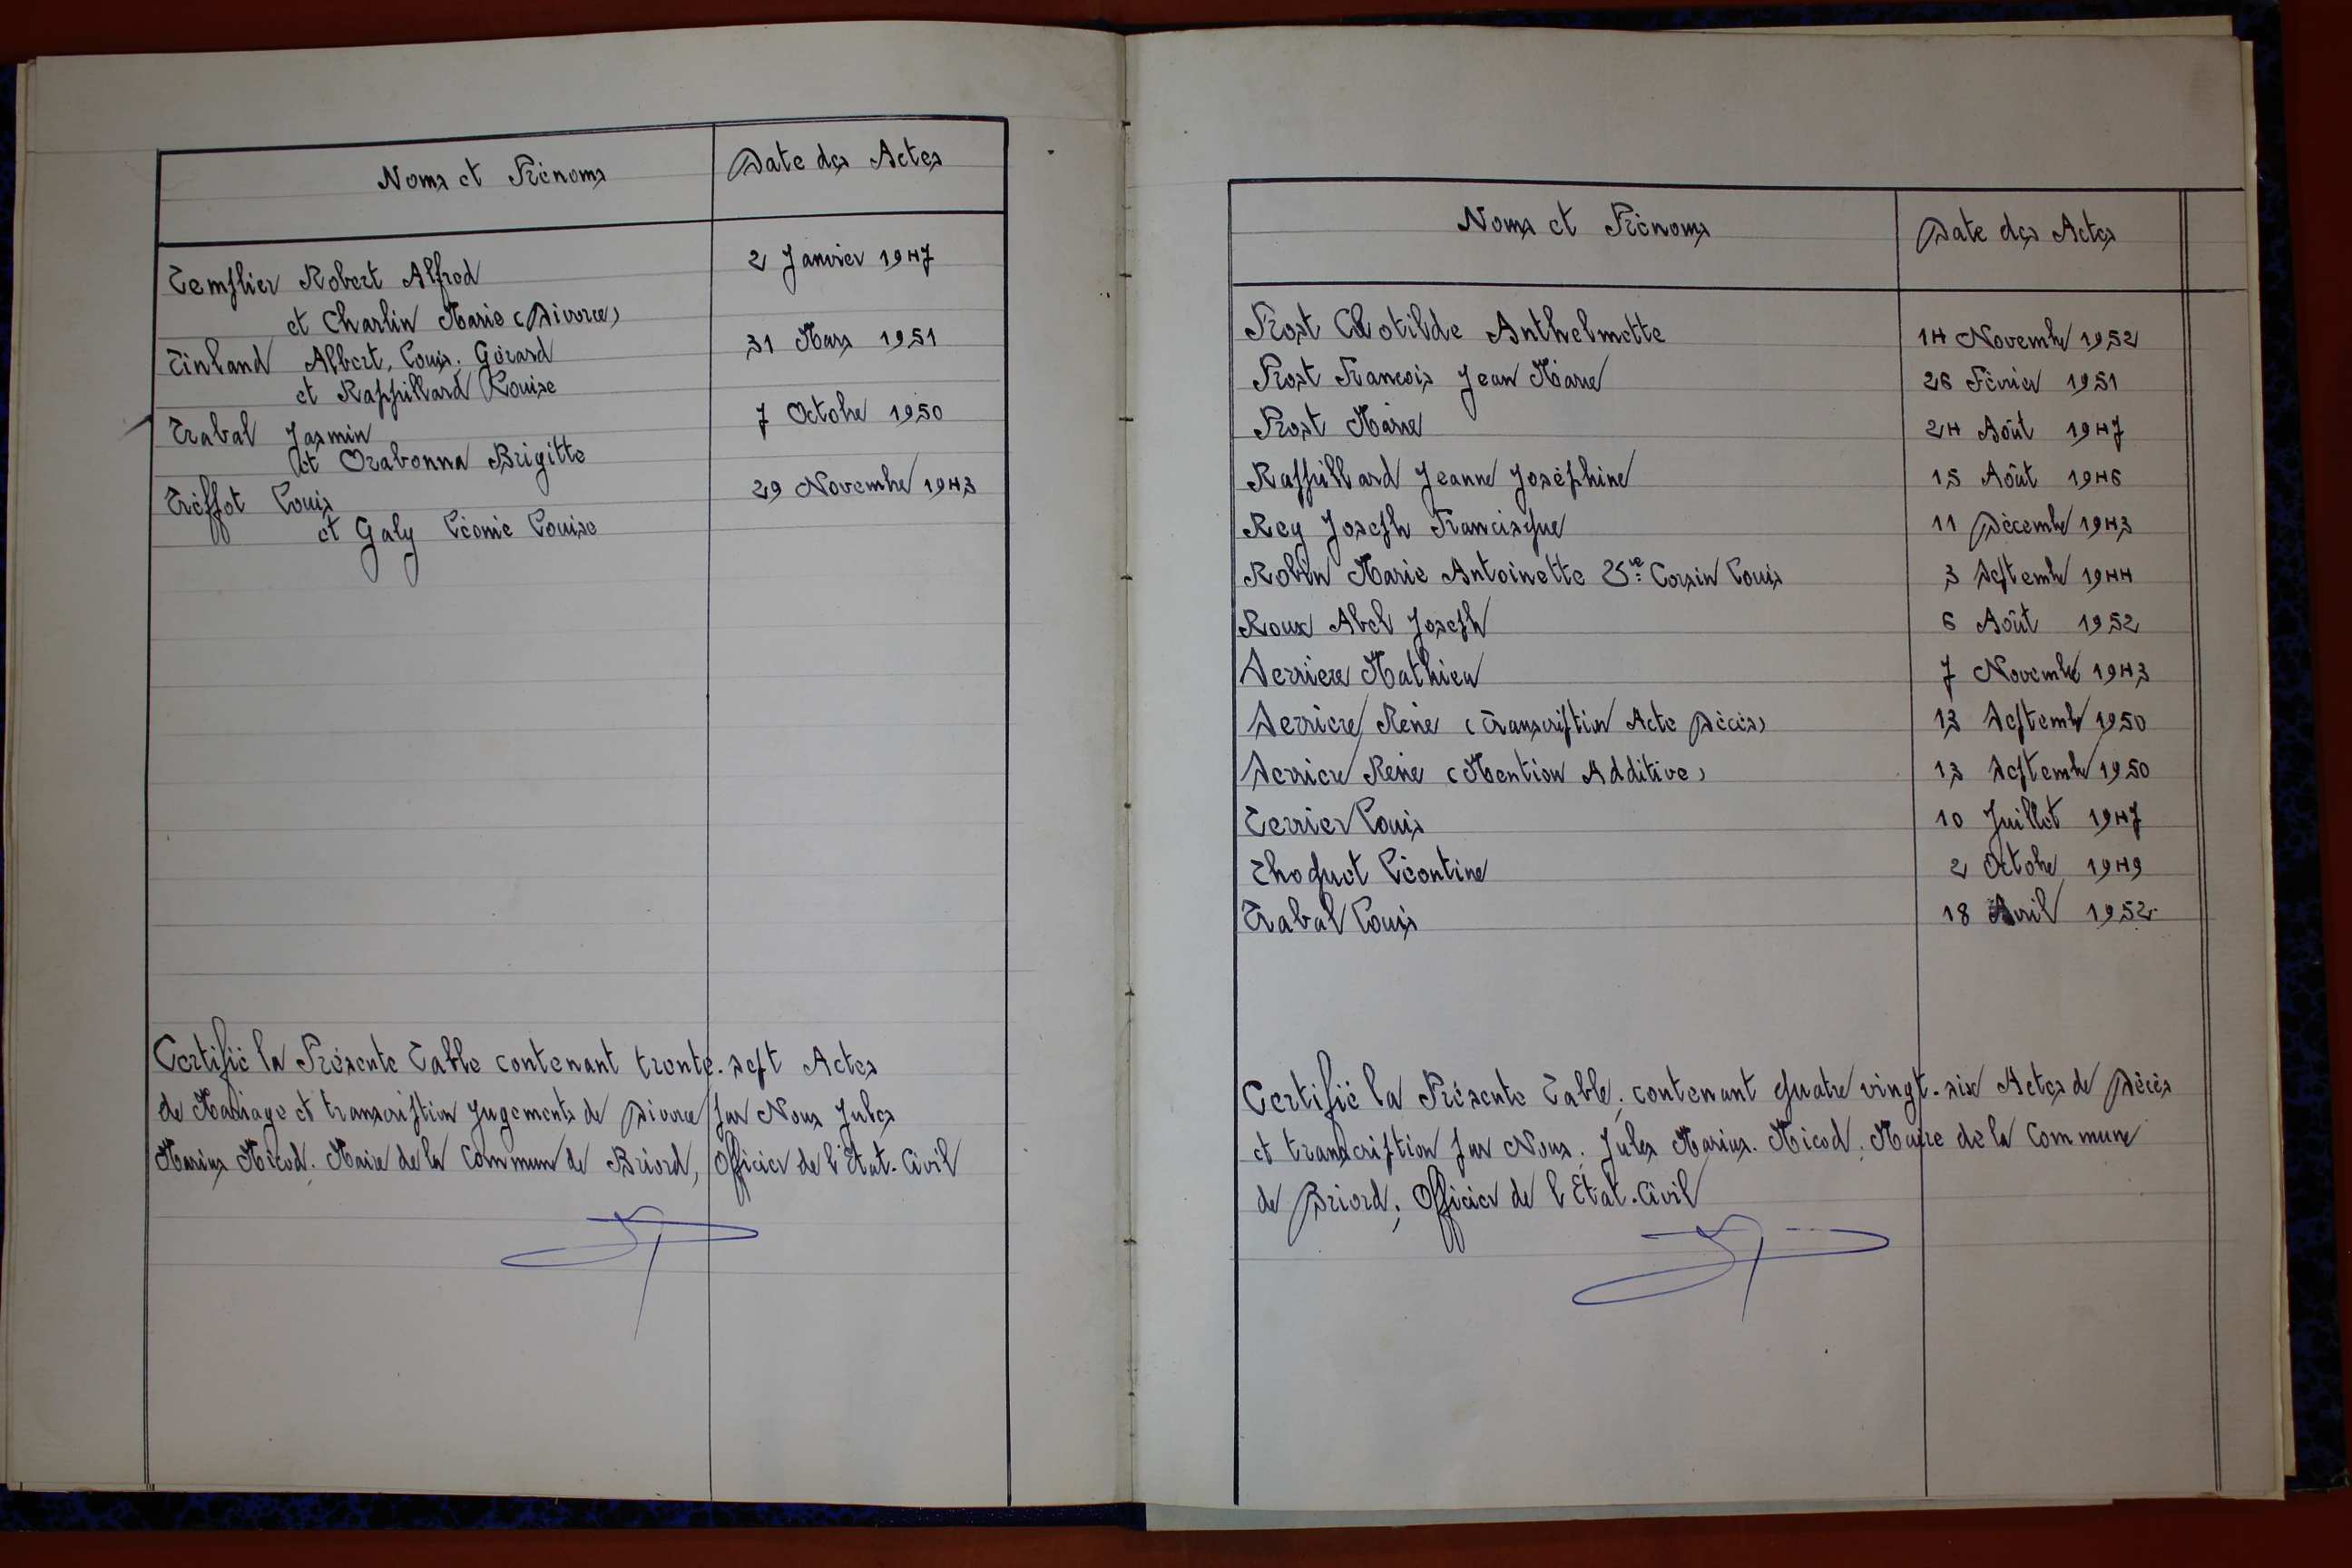 Noms et Prénoms
Date des Actes
Templier Robert Alfred
2 Janvier 1947
et Charlin Marie (Divorce)
Tinland Albert, Louis, Gérard
31 Mars 1951
et Rappillard Louise
Trabal Jasmin
7 Octobre 1950
et Orabonna Brigitte
Tréffot Louis
29 Novembre 1943
et Galy Léonie Louise
Certifié la Présente Table contenant trente-sept Actes
de Mariage et transcription Jugements de Divorce par Nous Jules
Marius Micod. Maire de la Commune de Briord, Officier de l'Etat-Civil
Noms et Prénoms
Date des Actes
Prost Clotilde Anthelmette
14 Novembre 1952
Prost François Jean Marie
26 Février 1951
Prost Marie
24 Août 1947
Rappillard Jeanne Joséphine
15 Août 1946
Rey Joseph Francisque
11 Décembre 1943
Robin Marie Antoinette Vve Corsin Louis
3 Septembre 1944
Roux Abel Joseph
6 Août 1952
Serriere Mathieu
7 Novembre 1943
Serriere Réné (Transcription Acte Décès)
13 Septembre 1950
Serriere Réné (Mention Additive)
13 Septembre 1950
Terrier Louis
10 Juillet 1947
Thoquet Léontine
2 Octobre 1949
Trabal Louis
18 Avril 1952
Certifié la Présente Table, contenant quatre vingt-six Actes de Décès
et transcription par Nous, Jules Marius. Micod, Maire de la Commune
de Briord, Officier de l'Etat-Civil